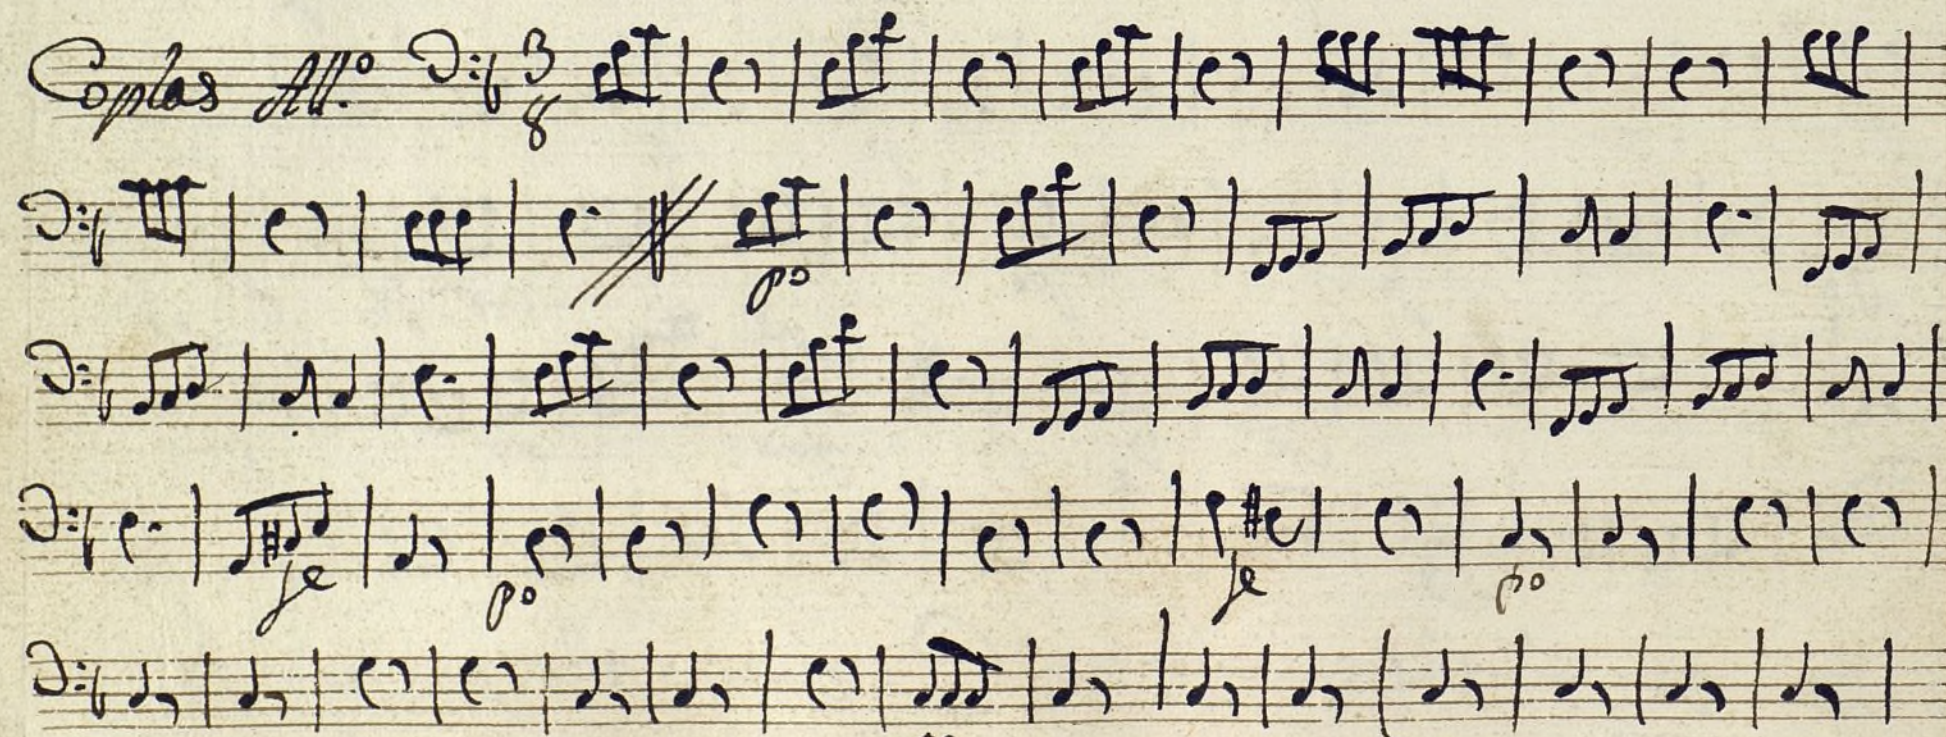 Coplas All.º 3 8
po
fe po fe po